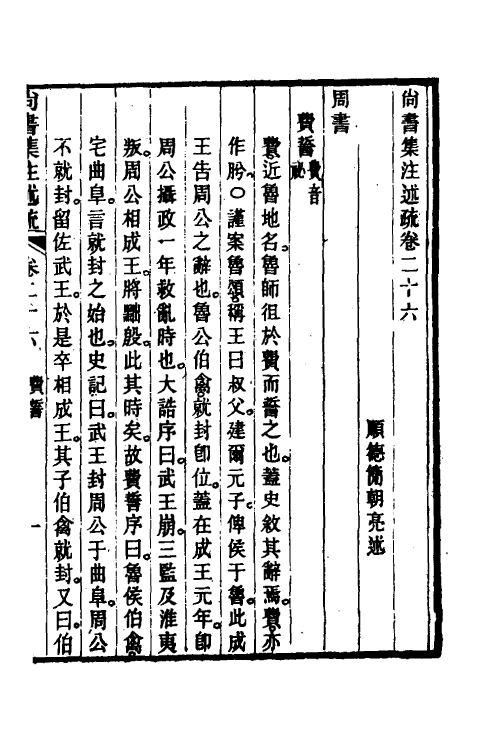 尙書集注述疏卷二十六
順德簡朝亮述
周書
費誓費音祕
費近魯地名魯師徂於費而誓之也。蓋史敘其辭焉。費亦
作肹○謹案魯頌稱王曰叔父。建爾元子。俾侯于魯。此成
王告周公之辭也。魯公伯禽就封卽位。蓋在成王元年。卽
周公攝政一年救亂時也。大誥序曰。武王崩。三監及淮夷
叛。周公相成王。將黜殷。此其時矣。故費誓序曰。魯侯伯禽
宅曲阜。言就封之始也。史記曰。武王封周公于曲阜。周公
不就封。留佐武王。於是卒相成王。其子伯禽就封。又曰。伯
尙書集注述疏 卷二十六 費誓 一